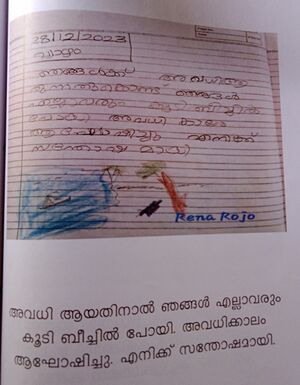 28/12/2023
വ്യാഴം
ഞങ്ങൾക്ക് അവധി
ഞങ്ങൾ
എല്ലാവരും കൂടി ബീച്ചിൽ
പോയി അവധി കാലം
ആഘോഷിച്ചു എനിക്ക്
സന്തോഷമായി
Rena Rojo
അവധി ആയതിനാൽ ഞങ്ങൾ എല്ലാവരും
കൂടി ബീച്ചിൽ പോയി. അവധിക്കാലം
ആഘോഷിച്ചു. എനിക്ക് സന്തോഷമായി.